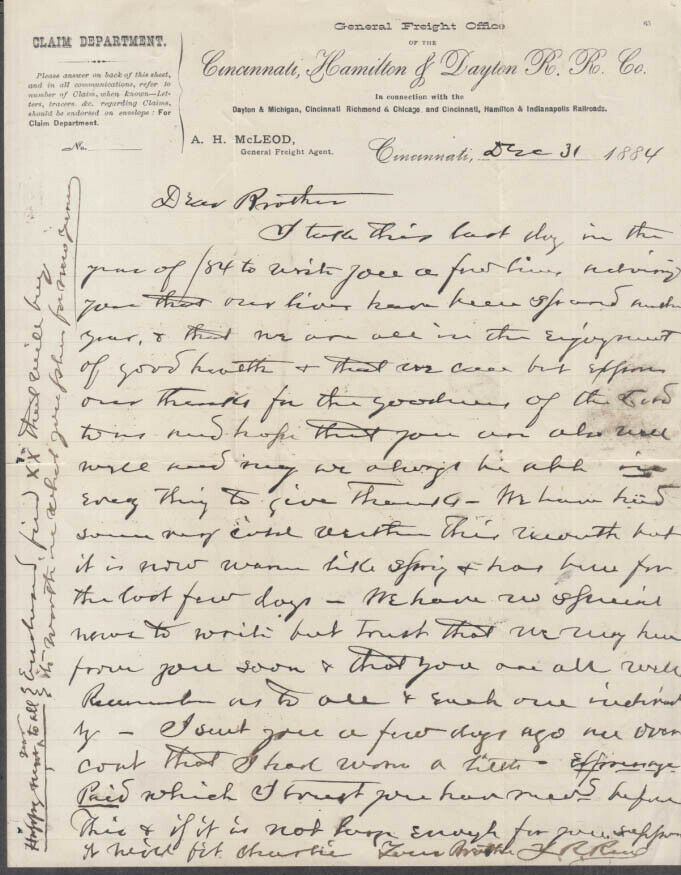 General Freight Office
OF THE
Cincinnati, Hamilton & Dayton R. R. Co.
In connection with the
Dayton & Michigan, Cincinnati Richmond & Chicago, and Cincinnati, Hamilton & Indianapolis Railroads.
CLAIM DEPARTMENT.
Please answer on back of this sheet,
and in all communications, refer to
number of Claim, when known—Let-
ters, tracers, &c. regarding Claims,
should be endorsed on envelope: For
Claim Department.
No.
A. H. McLEOD,
General Freight Agent.
Cincinnati, Dec 31 1884
Dear Brother
I take this last day in the
year of /84 to write you a few lines advising
you that our lives have been spared another
year, & that we are all in the Enjoyment
of good health & that we can but Express
our thanks for the goodness of the Lord
to us and hope that you are also well
well and may we always be able in
Every thing to give thanks – We have had
some very cold weather this month but
it is now warm like Spring & has been for
the last few days – We have no special
news to write but trust that we may hear
from you soon & that you are all well
Remember us to all & Each one individ
ly – I sent you a few days ago an over
coat that I had worn a little – Expressage
Paid which I trust you have recd before
this & if it is not large enough for you suppose
it would fit Charlie Your Brother
Happy new year to all & Enclosed find that will buy
its worth in what you for